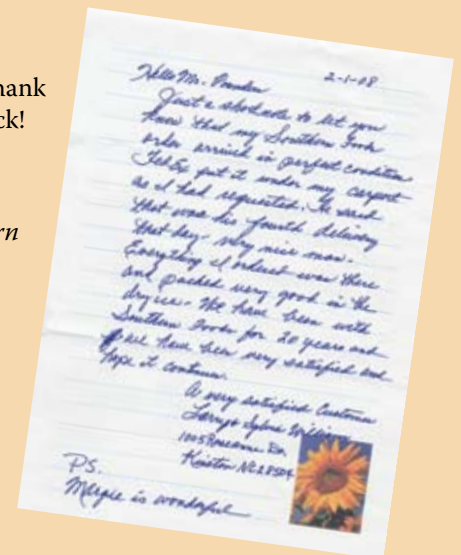 hank
ck!
rn
2-1-08
Hello Mr.
Just a short note to let you
know that my Southern Foods
order arrived in perfect condition
Fed Ex put it under my carport
as I had requested. He said
that was his fourth delivery
that day - very nice man.
Everything I ordered was there
and packed very good in the
dry ice. We have been with
Southern Foods for 20 years and
have been very satisfied and
hope it continues.
A very satisfied Customer
Sylvia
Dr.
Kinston NC 28504
P.S.
Margie is wonderful